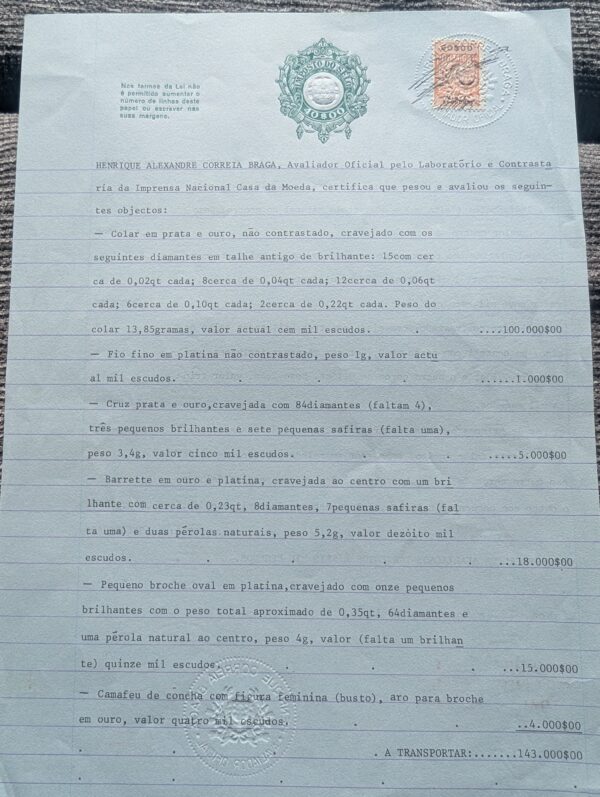 Nos termos da Lei não
é permitido aumentar o
número de linhas deste
papel ou escrever nas
suas margens.
IMPOSTO DO SELO
10$00
HENRIQUE ALEXANDRE CORREIA BRAGA, Avaliador Oficial pelo Laboratório e Contrasta
ria da Imprensa Nacional Casa da Moeda, certifica que pesou e avaliou os seguin-
tes objectos:
— Colar em prata e ouro, não contrastado, cravejado com os
seguintes diamantes em talhe antigo de brilhante: 15com cer
ca de 0,02qt cada; 8cerca de 0,04qt cada; 12cerca de 0,06qt
cada; 6cerca de 0,10qt cada; 2cerca de 0,22qt cada. Peso do
colar 13,85gramas, valor actual cem mil escudos. . ....100.000$00
— Fio fino em platina não contrastado, peso 1g, valor actu
al mil escudos. . . . ......1.000$00
— Cruz prata e ouro,cravejada com 84diamantes (faltam 4),
três pequenos brilhantes e sete pequenas safiras (falta uma),
peso 3,4g, valor cinco mil escudos. . . . .....5.000$00
— Barrette em ouro e platina, cravejada ao centro com um bri
lhante com cerca de 0,23qt, 8diamantes, 7pequenas safiras (fal
ta uma) e duas pérolas naturais, peso 5,2g, valor dezóito mil
escudos. . . . . ...18.000$00
— Pequeno broche oval em platina,cravejado com onze pequenos
brilhantes com o peso total aproximado de 0,35qt, 64diamantes e
uma pérola natural ao centro, peso 4g, valor (falta um brilhan
te) quinze mil escudos. . . . ...15.000$00
— Camafeu de concha com figura feminina (busto), aro para broche
em ouro, valor quatro mil escudos. . . . ..4.000$00
. . . A TRANSPORTAR:.......143.000$00